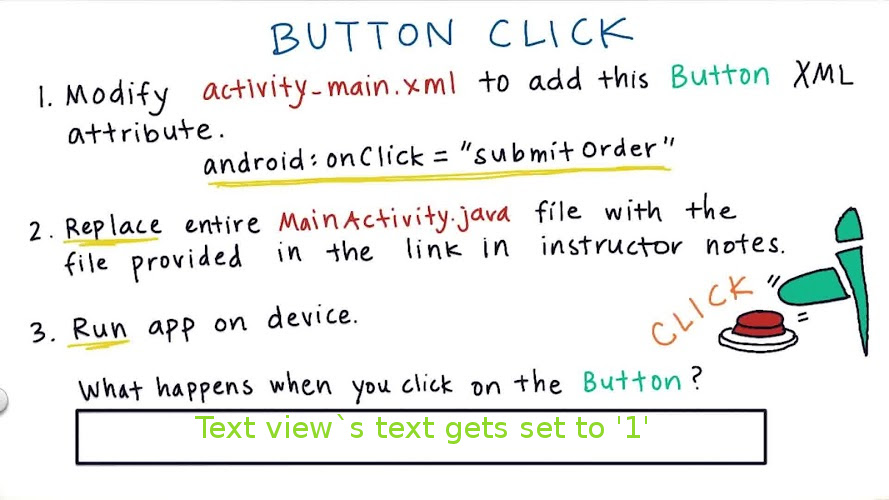 BUTTON CLICK
1. Modify activity_main.xml to add this Button XML
attribute.
android:onClick = "submitOrder"
2. Replace entire MainActivity.java file with the
file provided in the link in instructor notes.
CLICK
3. Run app on device.
What happens when you click on the Button?
Text view`s text gets set to '1'